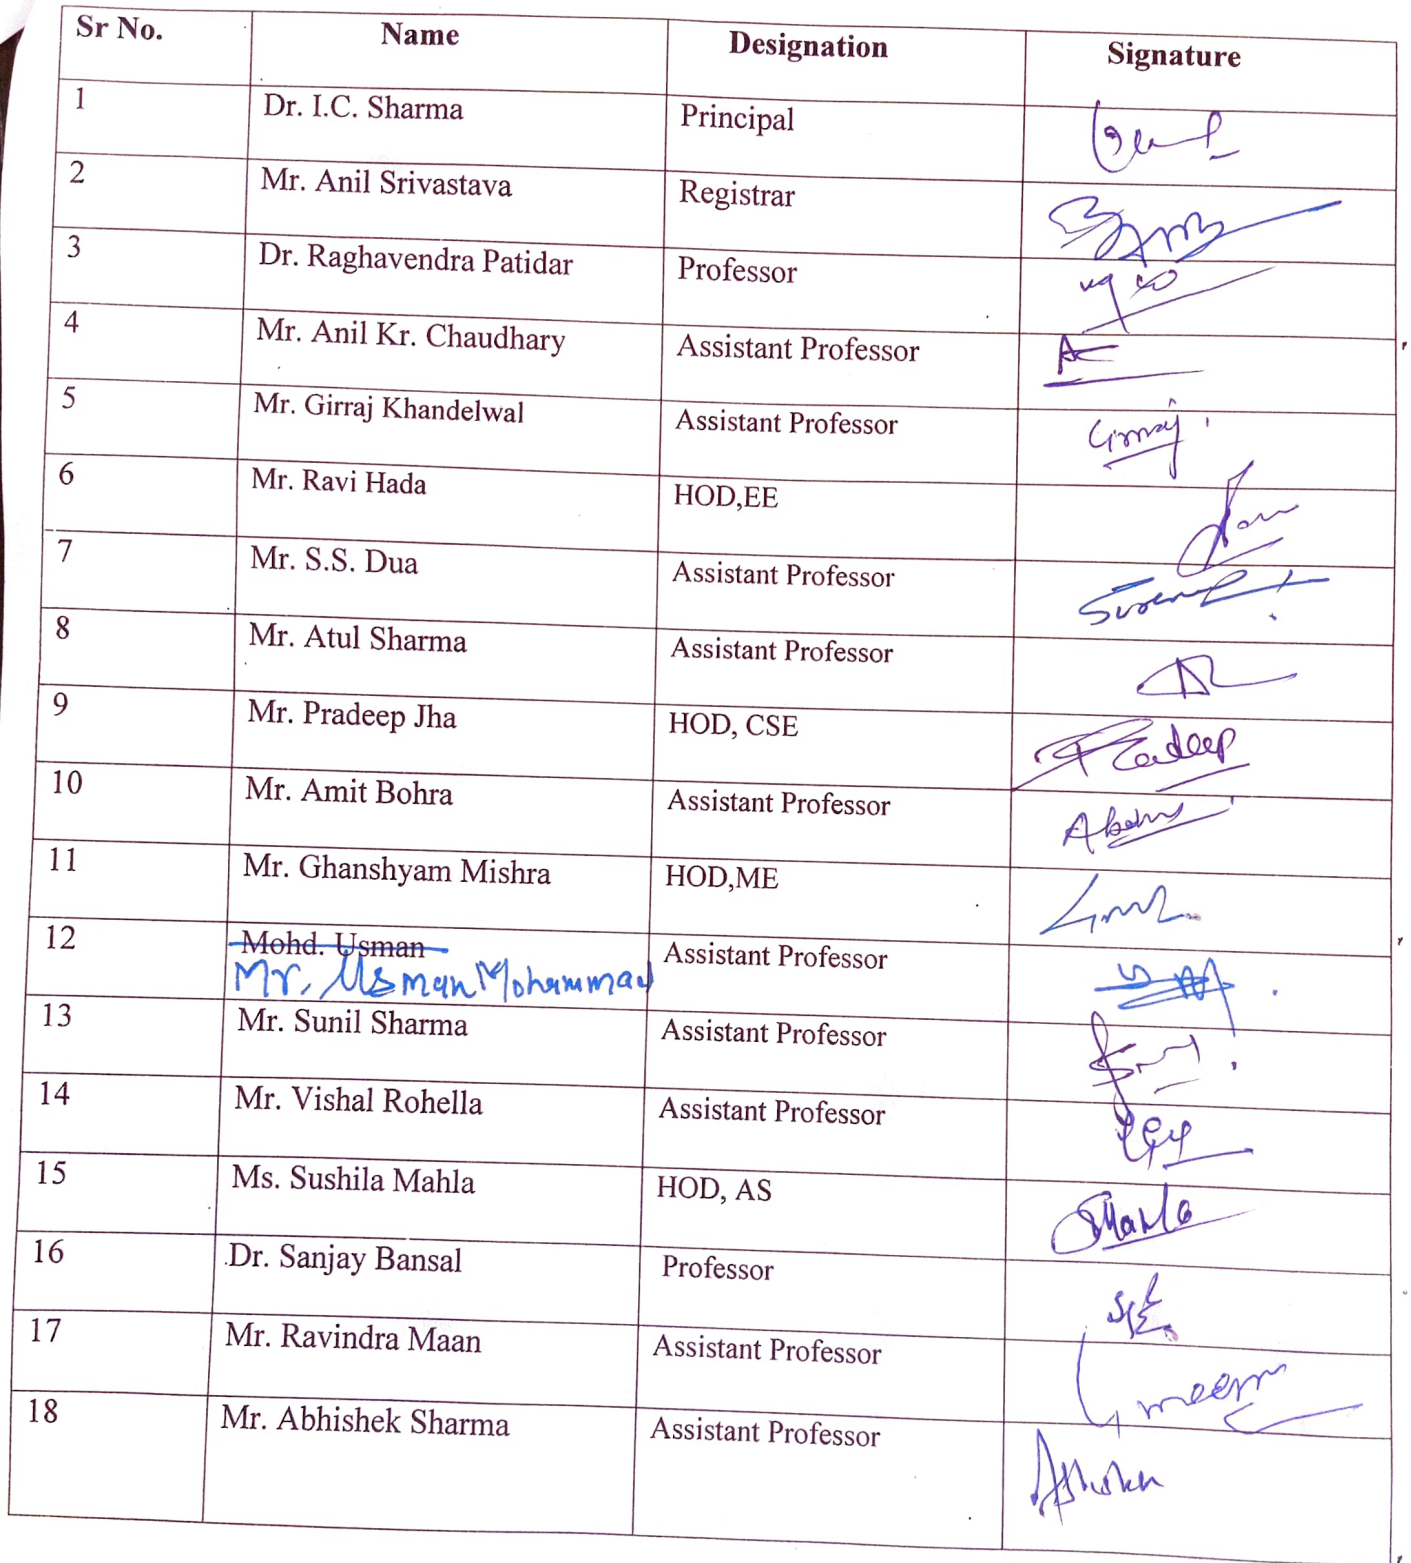 Sr No. Name Designation Signature
1 Dr. I.C. Sharma Principal
2 Mr. Anil Srivastava Registrar
3 Dr. Raghavendra Patidar Professor
4 Mr. Anil Kr. Chaudhary Assistant Professor
5 Mr. Girraj Khandelwal Assistant Professor Girraj
6 Mr. Ravi Hada HOD,EE
7 Mr. S.S. Dua Assistant Professor
8 Mr. Atul Sharma Assistant Professor
9 Mr. Pradeep Jha HOD, CSE Pradeep
10 Mr. Amit Bohra Assistant Professor
11 Mr. Ghanshyam Mishra HOD,ME
12 Mohd. Usman Assistant Professor
Mr. Usman Mohammad
13 Mr. Sunil Sharma Assistant Professor
14 Mr. Vishal Rohella Assistant Professor
15 Ms. Sushila Mahla HOD, AS SMahla
16 Dr. Sanjay Bansal Professor
17 Mr. Ravindra Maan Assistant Professor
18 Mr. Abhishek Sharma Assistant Professor